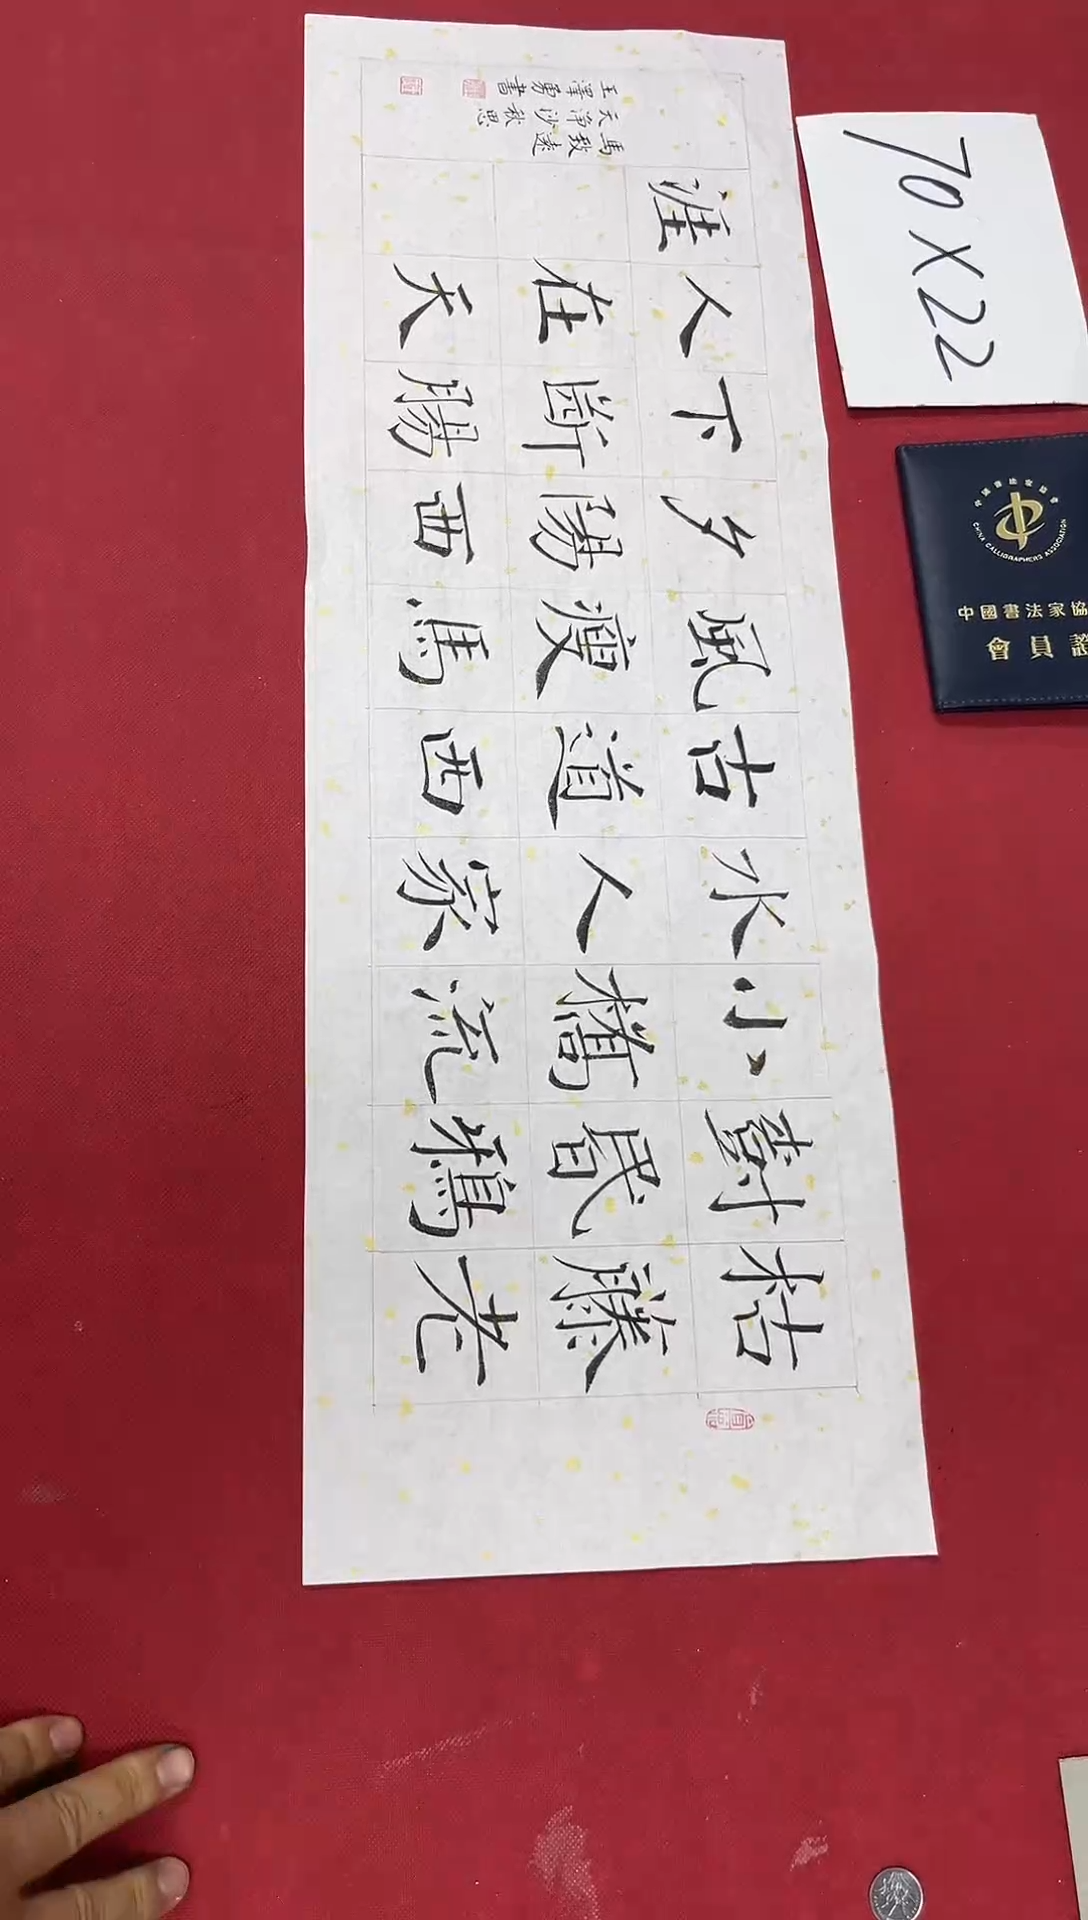 枯藤老
樹昏鴉
小橋流
水人家
古道西
風瘦馬
夕陽西
下斷腸
人在天
涯
馬致遠
天淨沙秋思
王澤勇書
70X22
中國書法家協會
CHINA CALLIGRAPHERS ASSOCIATION
中國書法家協
會員證